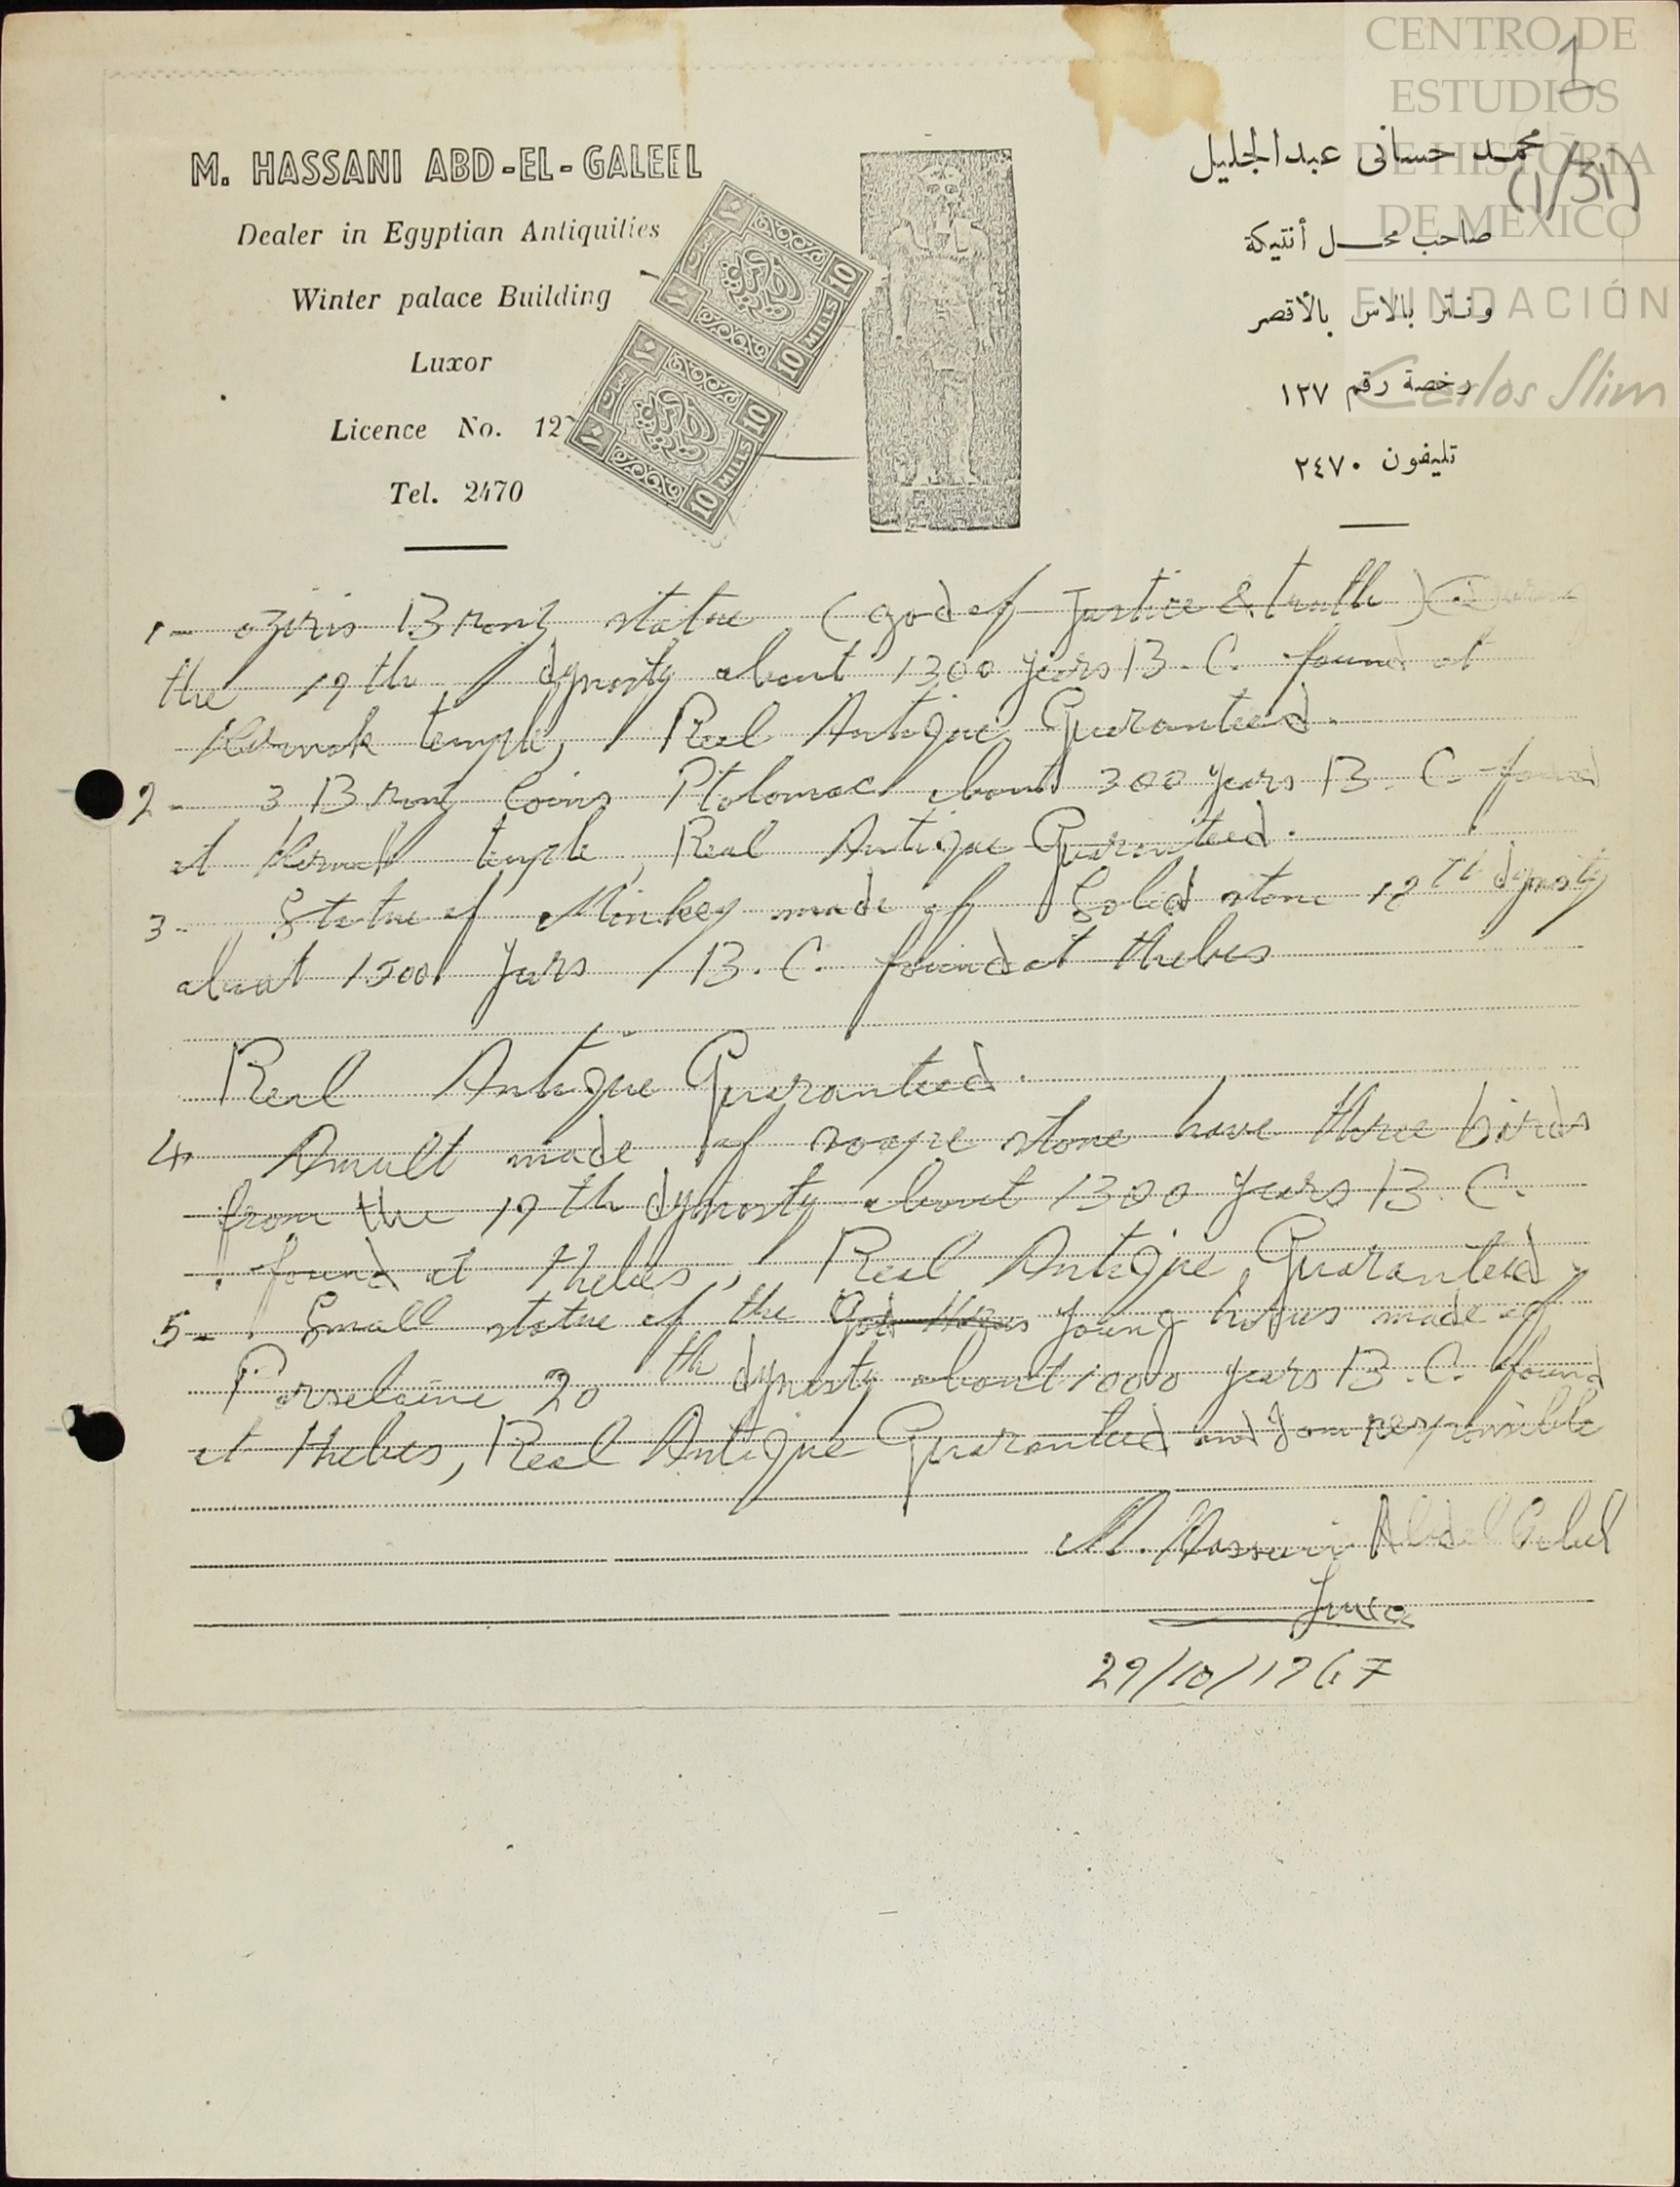 CENTRO DE
ESTUDIOS
DE HISTORIA
DE MÉXICO
FUNDACIÓN
Carlos Slim
1
(1/31)
M. HASSANI ABD-EL-GALEEL
Dealer in Egyptian Antiquities
Winter palace Building
Luxor
Licence No. 12
Tel. 2470
10 MILLS 10
10 MILLS 10
محمد حسانى عبد الجليل
صاحب محل أنتيكة
ونتر بالاس بالأقصر
رخصة رقم ١٢٧
تليفون ٢٤٧٠
1- oziris Bronz statue (god of Justice & truth)
the 19th dynasty about 1300 years B.C. found at
Karnak temple, Real Antique Guaranteed.
2- 3 Bronz Coins Ptolomac about 300 years B.C. found
at Karnak temple, Real Antique Guaranteed.
3- Statue of Monkey made of Solid stone 18th dynasty
about 1500 years B.C. found at thebes
Real Antique Guaranteed.
4- Amult made of soape stone have three birds
from the 19th dynasty about 1300 years B.C.
found at thebes, Real Antique Guaranteed.
5- Small statue of the God Horus young horus made of
Porselaine 20th dynasty about 1000 years B.C. found
at thebes, Real Antique Guaranteed and I am responsible
M. Hassani Abdel Galeel
29/10/1967